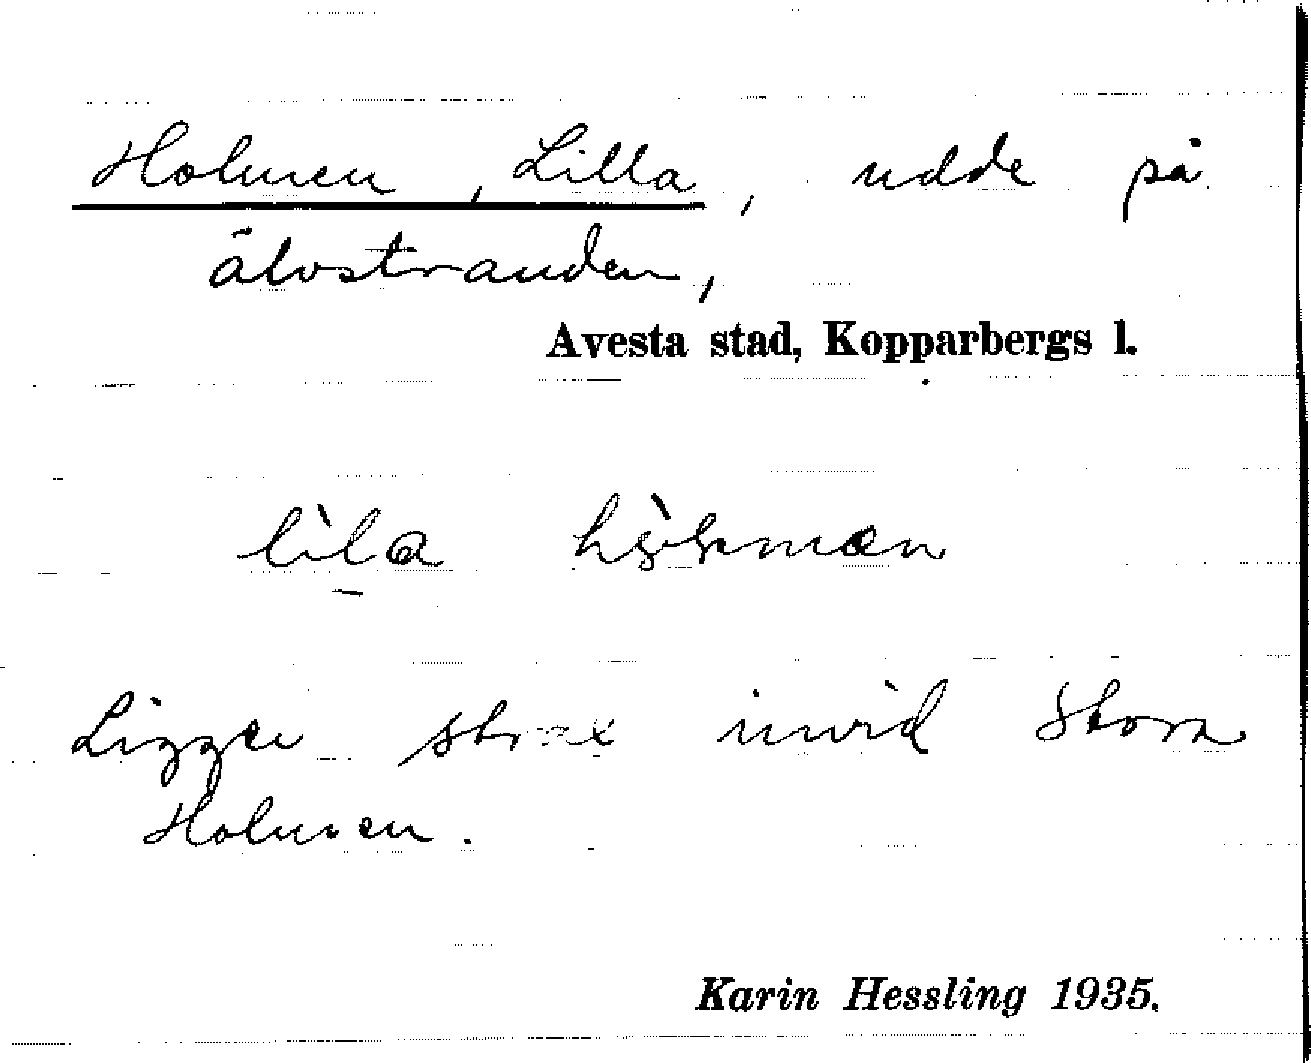 Holmen, Lilla, udde på
älvstranden,
Avesta stad, Kopparbergs l.
Ligger strax invid Stora
Holmen.
Karin Hessling 1935.